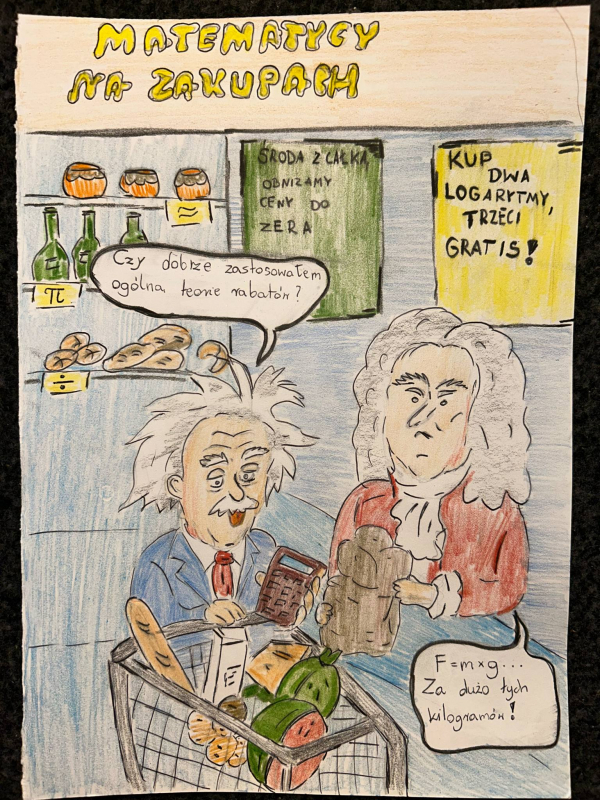 MATEMATYCY
NA ZAKUPACH
ŚRODA Z CAŁKĄ
OBNIŻAMY
CENY DO
ZERA
KUP
DWA
LOGARYTMY,
TRZECI
GRATIS!
≈
π
÷
Czy dobrze zastosowałem
ogólną teorię rabatów?
F=m×g...
Za dużo tych
kilogramów!